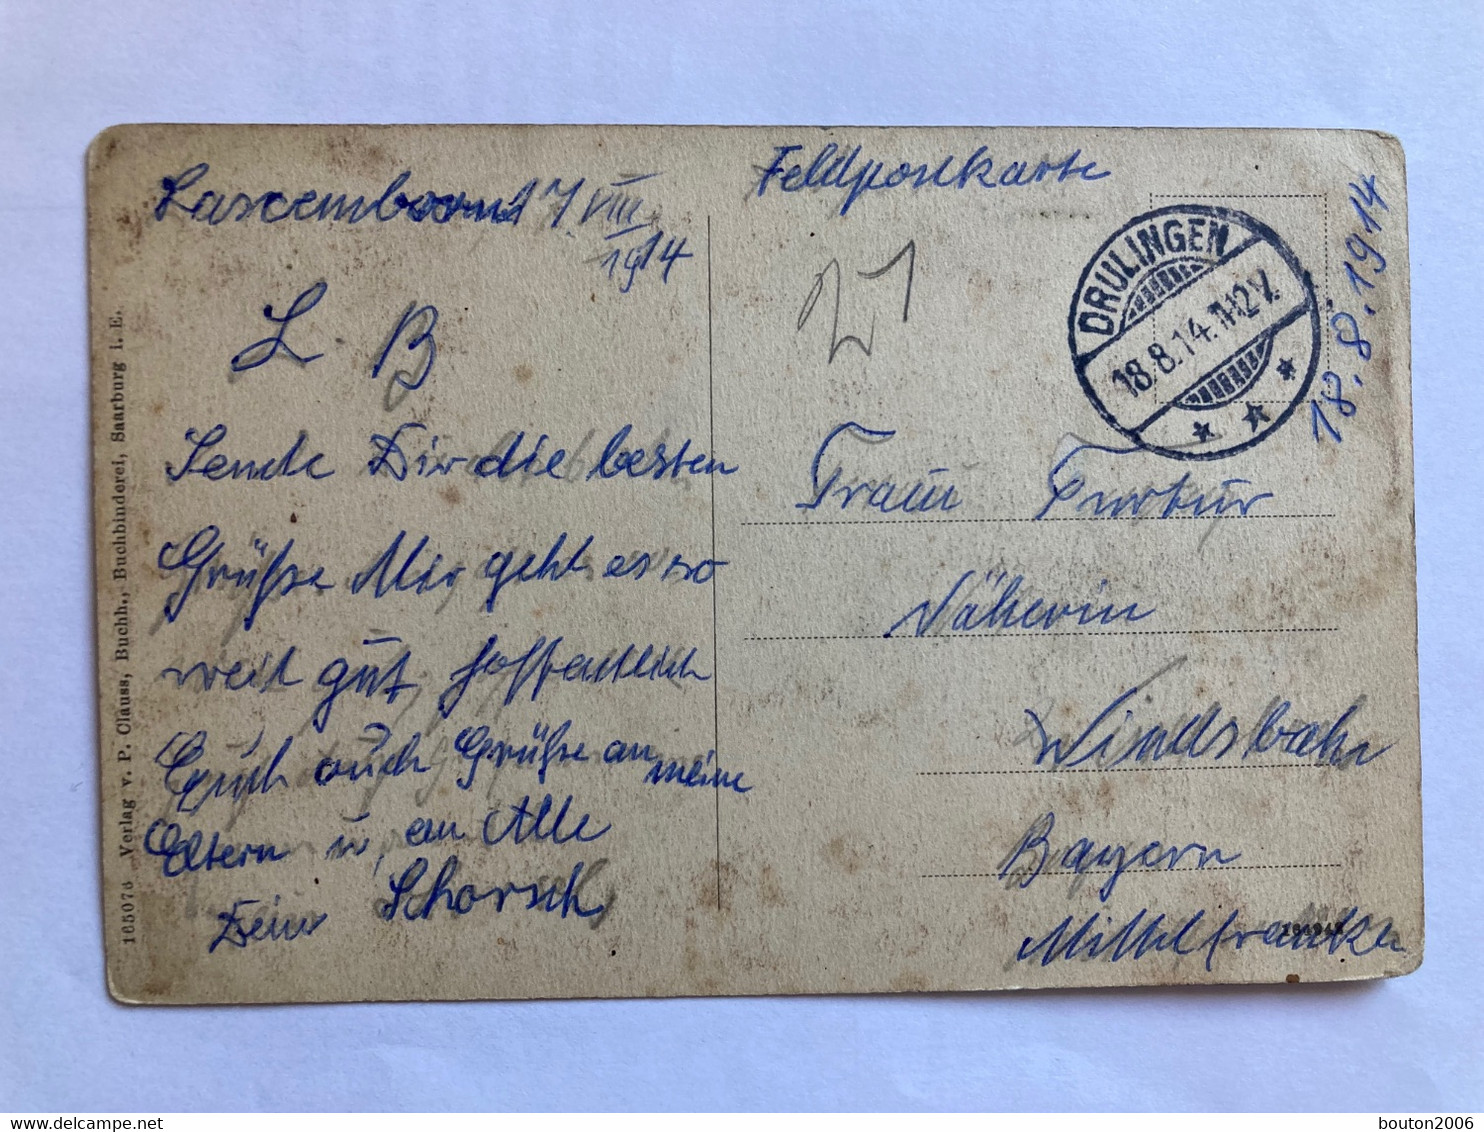 7 VIII
1914
L B
Sende Dir die besten
Grüße Mir geht es so
weit gut hoffentlich
Euch auch Grüße an meine
Eltern u. an Alle
Dein Schorsch
Feldpostkarte
21
DRULINGEN
18.8.14. 11-12 V.
18.8.1914
Frau
Näherin
Windsbach
Bayern
Mittelfranken
165076 Verlag v. P. Clauss, Buchh., Buchbinderei, Saarburg i. E.
bouton2006